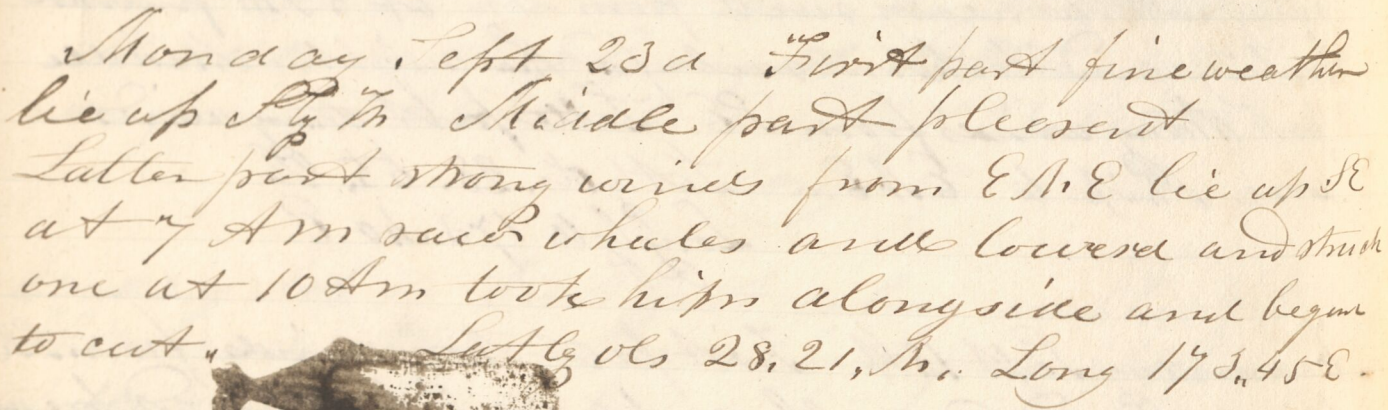 Monday Sept 23d "First part fine weather
lie up Middle part pleesent
Latter part strong winds from E N E lie up SE
at 7 Am saw whales and lowerd and struck
one at 10 Am took him alongside and began
to cut„ Lat by obs 28.21„ N„ Long 173„45 E.